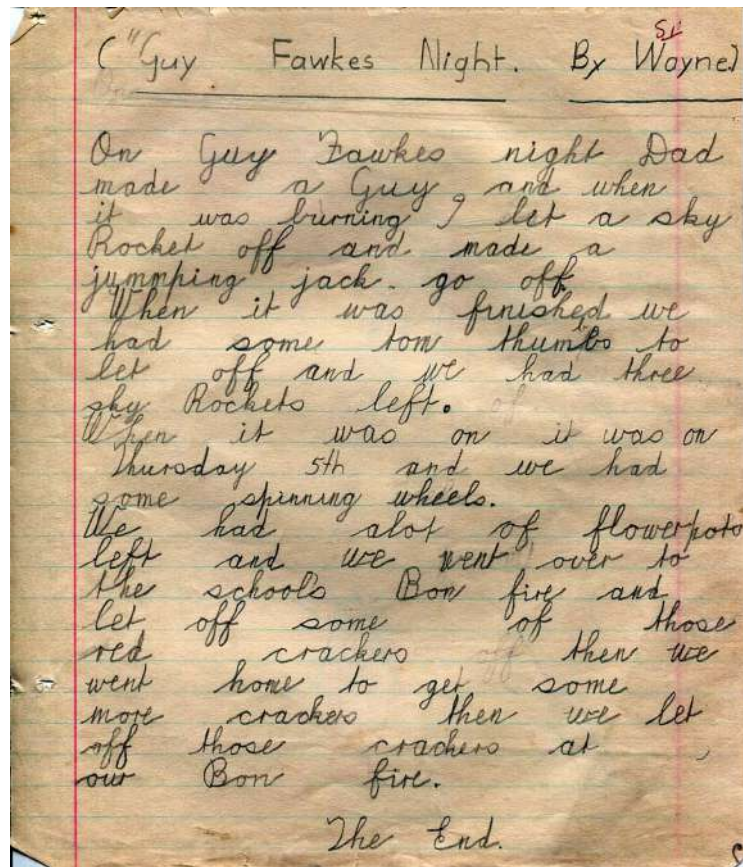 ("Guy Fawkes Night. By Wayne)
On Guy Fawkes night Dad
made a Guy, and when
it was burning I let a sky
Rocket off and made a
jummping jack. go off.
When it was finished we
had some tom thumbs to
let off and we had three
sky Rockets left. of
When it was on it was on
Thursday 5th and we had
some spinning wheels.
We had alot of flowerpots
left and we went over to
the school's Bon fire and
let off some of those
red crackers off then we
went home to get some
more crackers then we let
off those crackers at
our Bon fire.
The End.